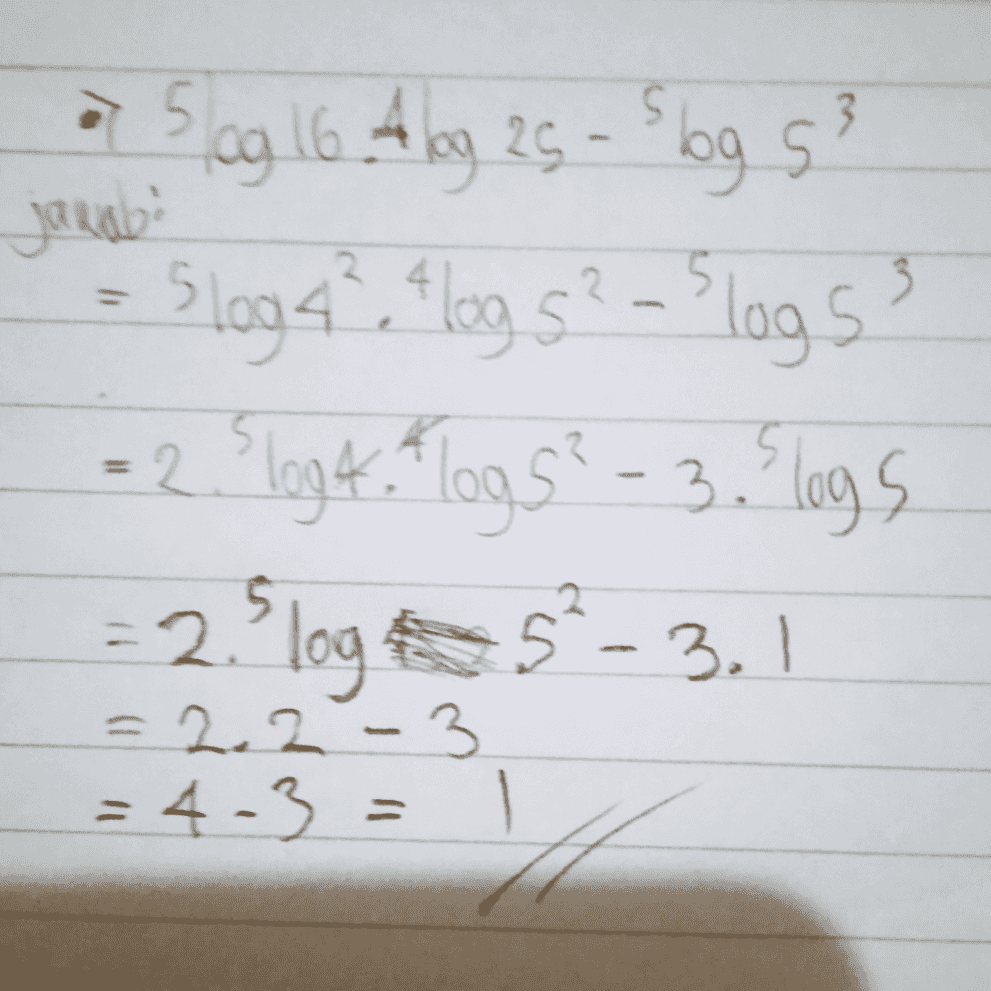 → ⁵log 16 . ⁴log 25 - ⁵log 5³
jawab:
= ⁵log 4² . ⁴log 5² - ⁵log 5³
= 2 . ⁵log 4 . ⁴log 5² - 3 . ⁵log 5
= 2 . ⁵log 5² - 3 . 1
= 2 . 2 - 3
= 4 - 3 = 1